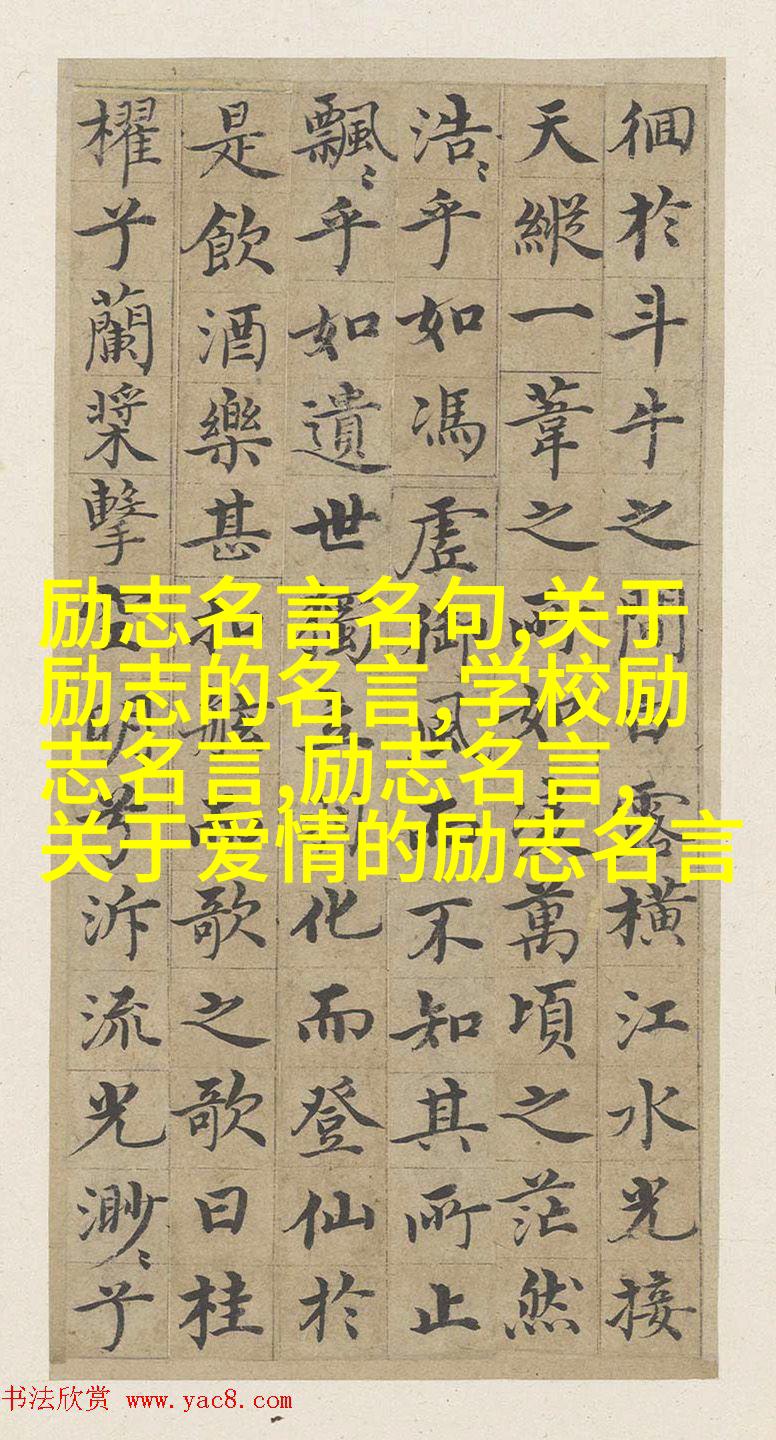 徊於斗牛之間白露橫江水光接
天縱一葦之所如凌萬頃之茫然
浩〻乎如馮虛御風而不知其所止
飄〻乎如遺世獨立羽化而登仙於
是飲酒樂甚扣舷而歌之歌曰桂
櫂兮蘭槳擊空明兮泝流光渺〻兮
励志名言名句,关于
励志的名言,学校励
志名言,励志名言,
关于爱情的励志名言
书法欣赏 www.yac8.com